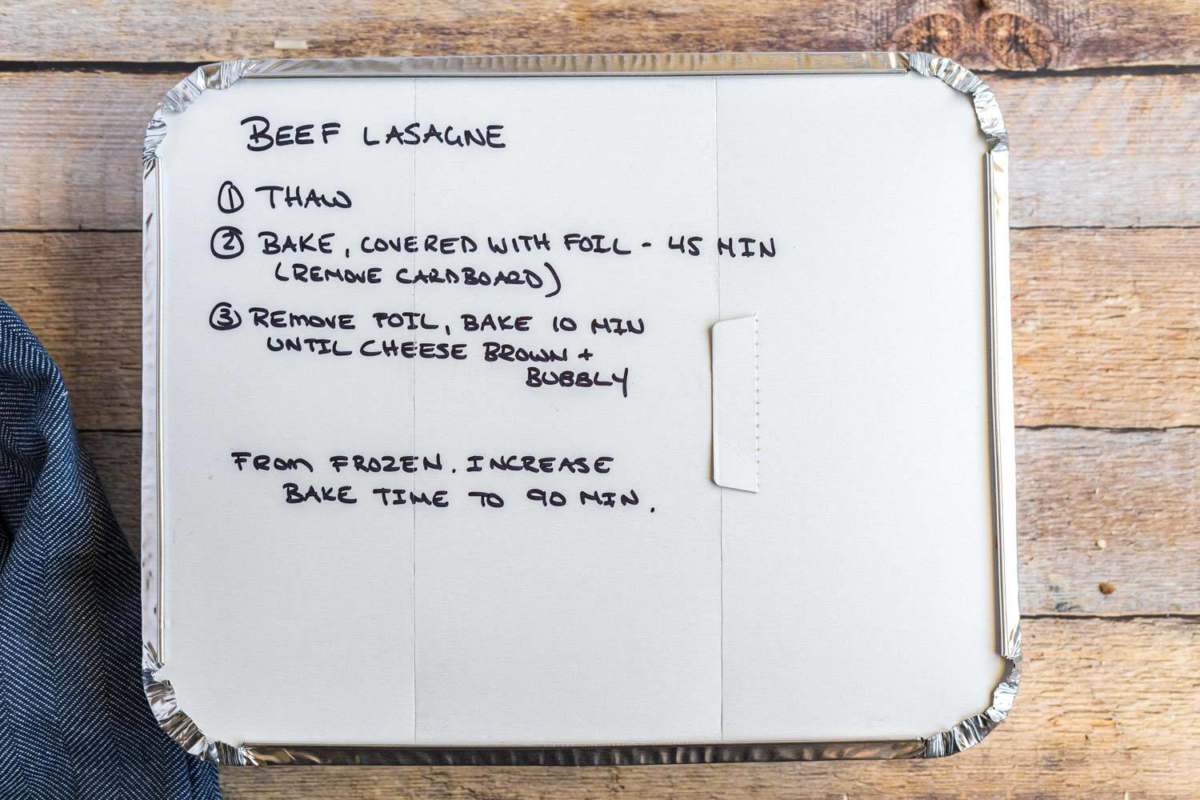 BEEF LASAGNE
① THAW
② BAKE, COVERED WITH FOIL - 45 MIN
(REMOVE CARDBOARD)
③ REMOVE FOIL, BAKE 10 MIN
UNTIL CHEESE BROWN +
BUBBLY
FROM FROZEN. INCREASE
BAKE TIME TO 90 MIN.